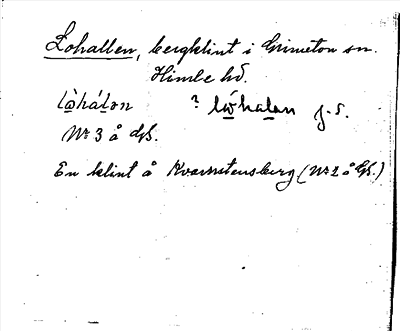 Lohallen, bergklint i Grimeton sn.
Himle hd.
lòhálon ? lὼhalon g.d.
Nr 3 å Gs.
En klint å Kvarnstensberg (Nr 2 å Gs.)